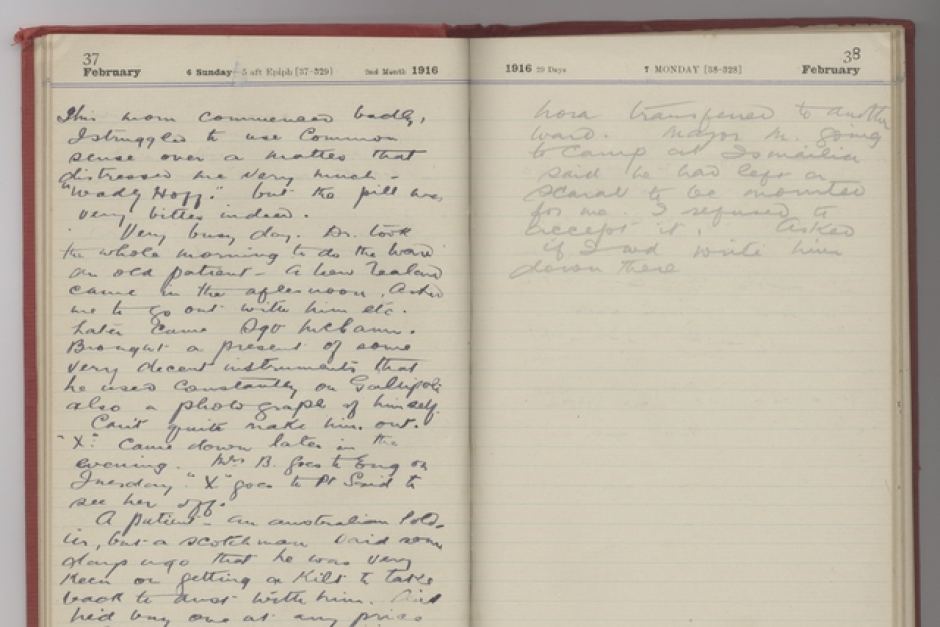 37
February 6 Sunday 5 aft Epiph [37-329] 2nd Month 1916
This morn commenced badly,
I struggled to use Common
sense over a matter that
distressed me very much -
"Wady Hoff". but the pill was
very bitter indeed.
Very busy day. Dr. took
the whole morning to do the ward
an old patient - a New Zealand
came in the afternoon. Asked
me to go out with him etc.
Later came Sgt McCann.
Brought a present of some
very decent instruments that
he used constantly on Gallipoli
also a photograph of himself.
Can't quite make him out.
"X" came down later in the
evening. Mrs B. goes to Eng on
Tuesday "X" goes to Pt Said to
see her off.
A patient - an australian Sold-
ier, but a scotchman said some
days ago that he was very
keen on getting a Kilt to take
back to Aust with him. And
he'd buy one at any price
38
1916 29 Days 7 MONDAY [38-328] February
transferred to another
ward. Major M. going
to camp at Ismailia
said he had left a
scarab to be mounted
for me. I refused to
accept it. Asked
if I wd write him
down there